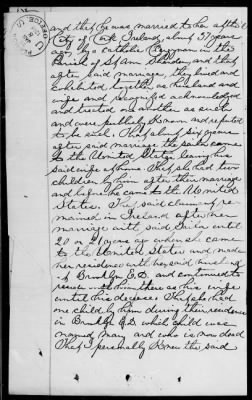 and that he was married to her at the
City of Cork Ireland, about 37 years
ago by a Catholic Clergyman in the
Parish of St Ann Shandon, and that
after said marriage, they lived and
cohabited together, as husband and
wife and recognized acknowledged
and treated one another as such
and were publicly known and reputed
to be such. That about six years
after said marriage the said came
to the United States leaving his
said wife at home. That she had two
children by him after their marriage
and before he came to the United
States. The said claimant re-
mained in Ireland after her
marriage with said until
20 or 21 years ago when she came
to the United States and made
her residence with her said husband
of Brooklyn E.D. and continued to
reside with him there as his wife
until his decease. That she had
one child by him during their residence
in Brooklyn E.D. which child was
named Mary and who is now dead
That I personally know the said